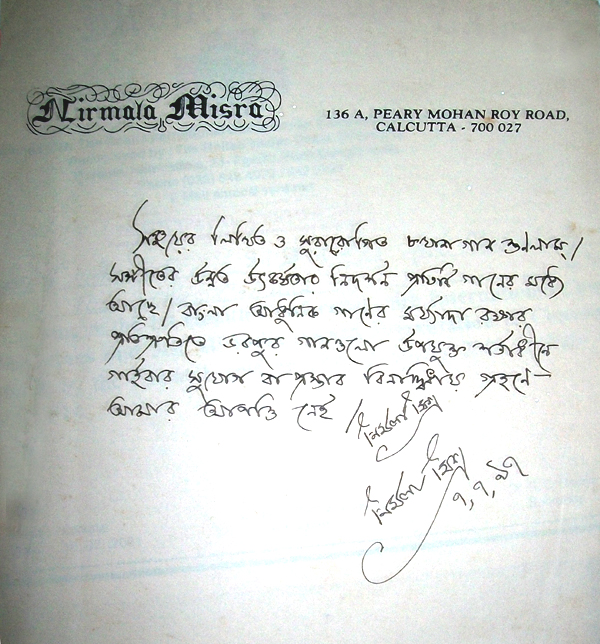 Nirmala Misra
136 A, PEARY MOHAN ROY ROAD,
CALCUTTA - 700 027
সঞ্জয়ের লিখিত ও সুরারোপিত গান শুনলাম।
সঙ্গীতের উন্নত উৎকর্ষতার নিদর্শন প্রতিটি গানের মধ্যে
আছে। বাংলা আধুনিক গানের মর্য্যাদা রক্ষার
প্রতিশ্রুতিতে ভরপুর গানগুলো উপযুক্ত শর্তাধীনে
গাইবার সুযোগ বা প্রস্তাব বিনাদ্বিধায় গ্রহনে
আমার আপত্তি নেই।
নির্মলা মিশ্র
নির্মলা মিশ্র
৭,৭,৯৭